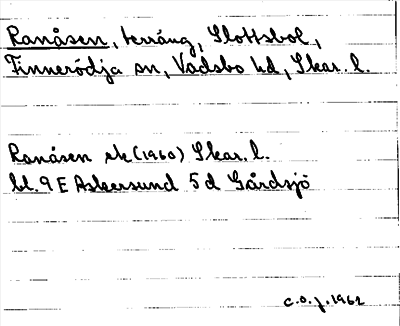 Ranåsen, terräng, Slottsbol,
Finnerödja sn, Vadsbo hd, Skar. l.
Ranåsen ek (1960) Skar. l.
bl. 9 E Askersund 5 d Gårdsjö
C.O.J. 1962